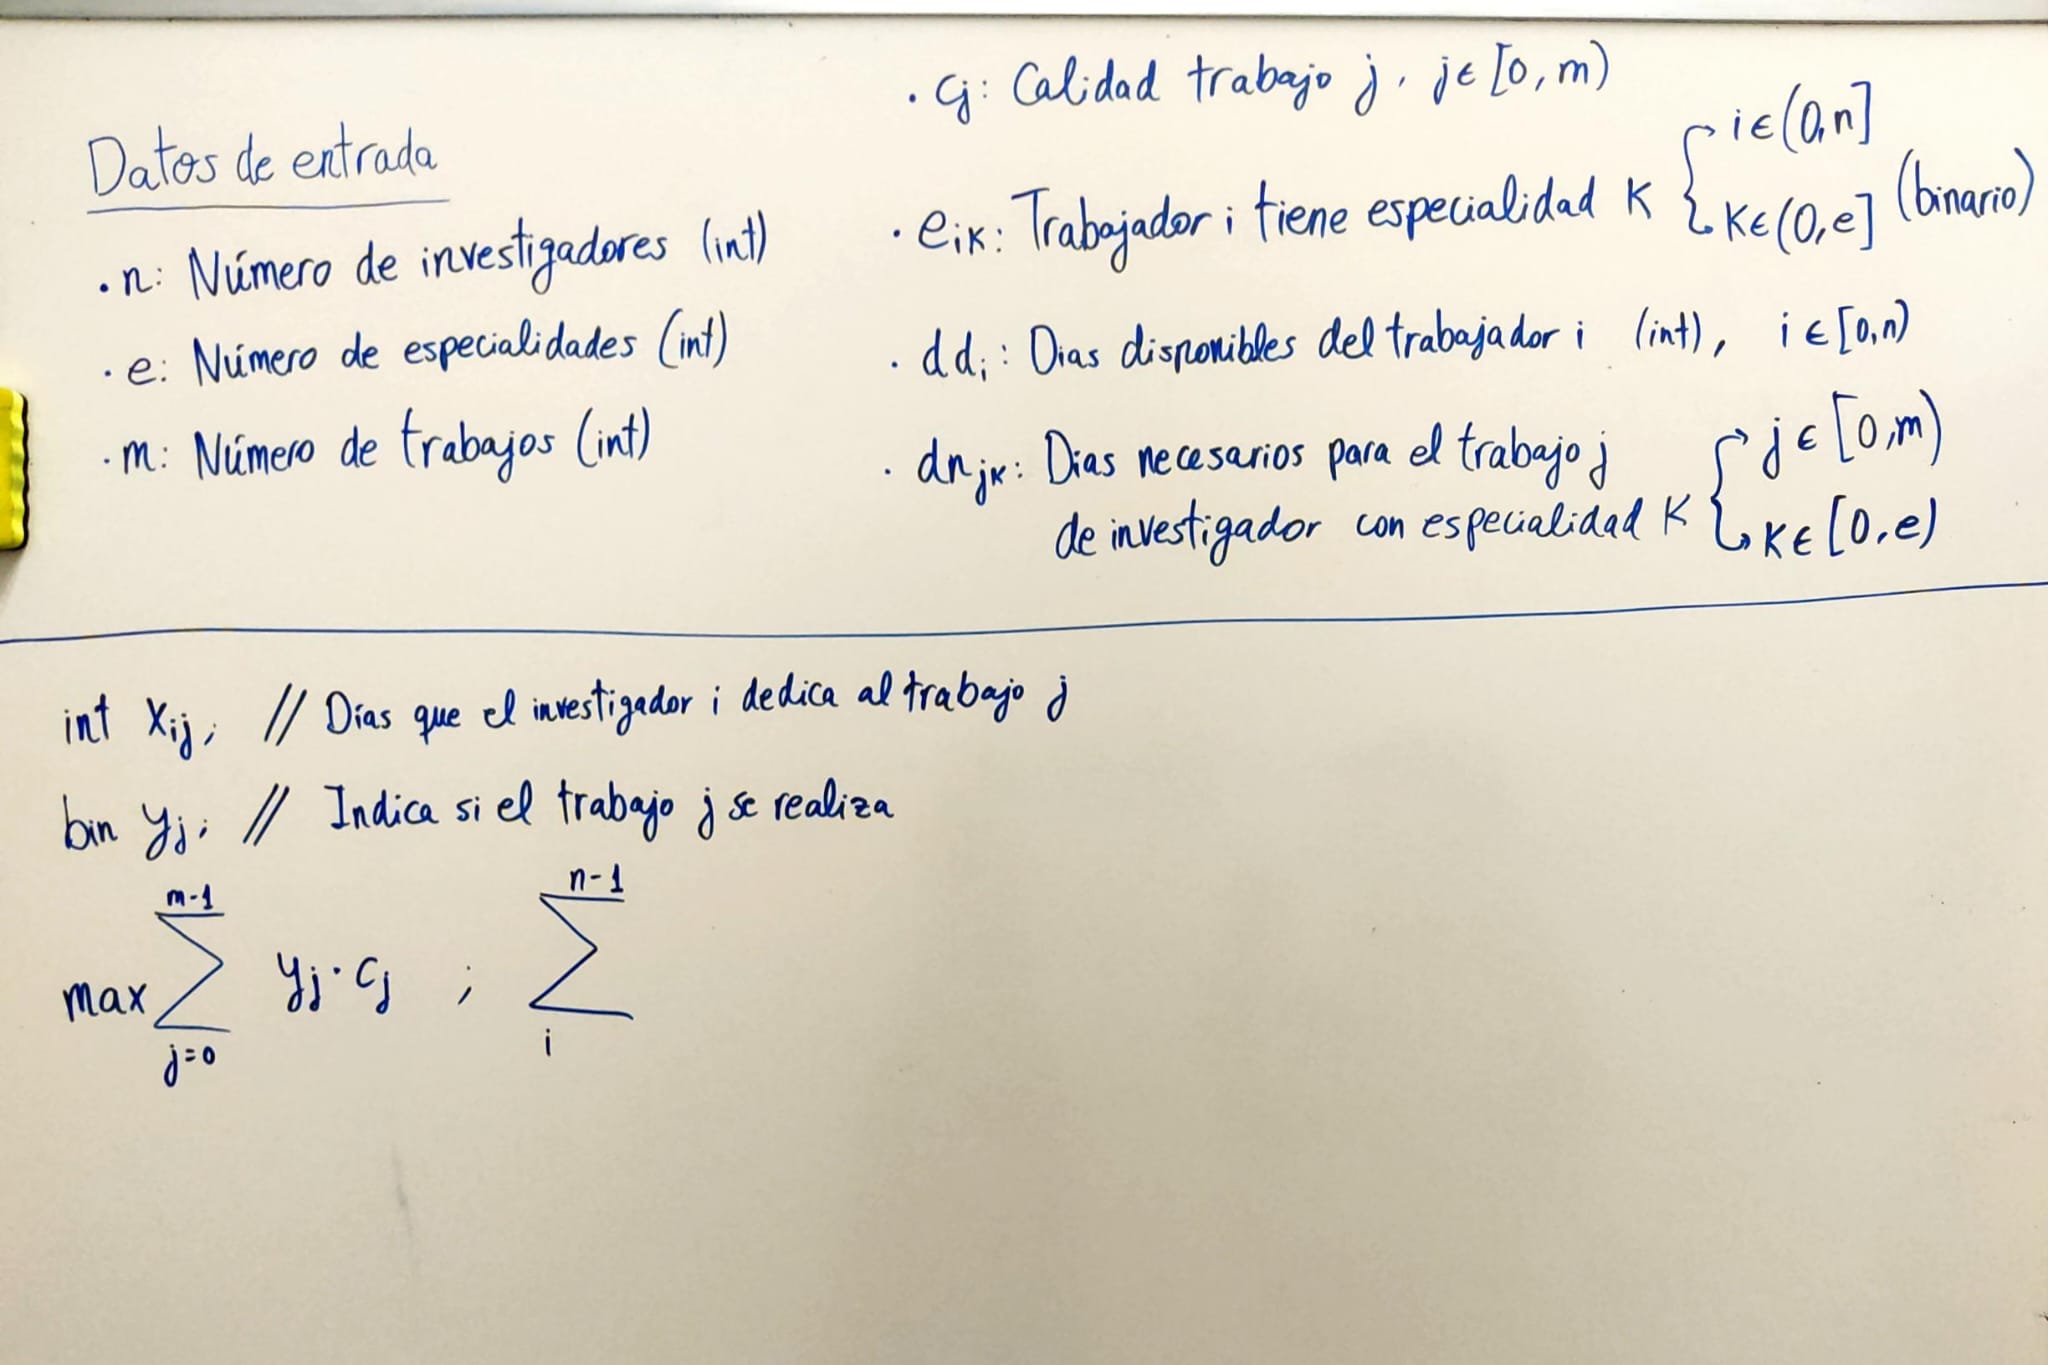 Datos de entrada
· n: Número de investigadores (int)
· e: Número de especialidades (int)
· m: Número de trabajos (int)
· cj: Calidad trabajo j, j∈[0,m)
· eik: Trabajador i tiene especialidad K { i∈(0,n] K∈(0,e] (binario)
· ddi: Dias disponibles del trabajador i (int), i∈[0,n)
· dnjk: Dias necesarios para el trabajo j
de investigador con especialidad K { j∈[0,m) K∈[0,e)
int xij; // Días que el investigador i dedica al trabajo j
bin yj; // Indica si el trabajo j se realiza
max ∑_{j=0}^{m-1} yj·cj ; ∑_{i}^{n-1}